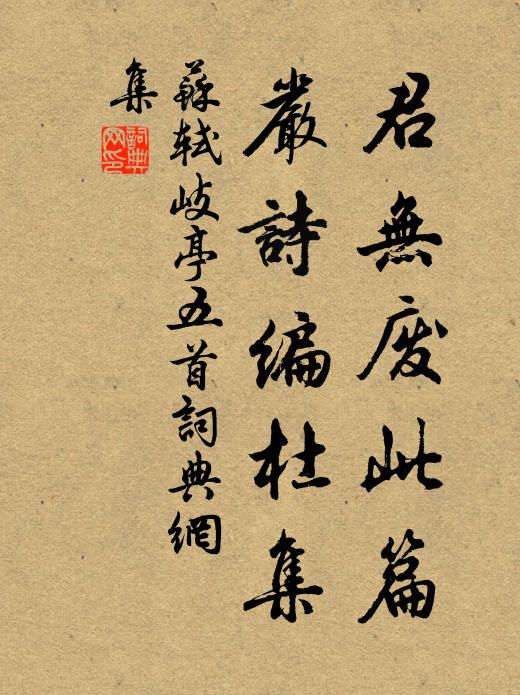 君無废此篇
嚴詩編杜集
蘇軾岐亭五首詞典網
集
詞典網印